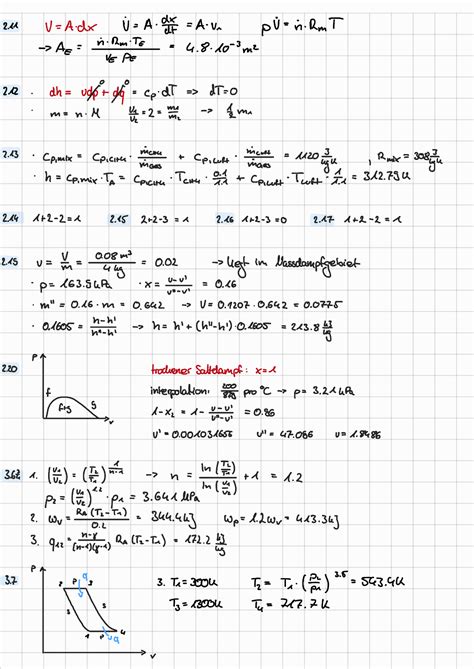 2.11 V = A·dx V̇ = A·dx/dt = A·vₙ pV̇ = ṅ·Rm T
→ A_E = ṅ·Rm·T_E / v_E p_E = 4.8·10⁻³ m²
2.12 · dh = vdp⁰ + dq⁰ = cp·dT → dT = 0
· m = n·M V₁/V₂ = 2 = m₁/m₂ → ½ m₁
2.13 · cp,mix = cp,CH4 · ṁCH4/ṁges + cp,Luft · ṁLuft/ṁges = 1120 J/kgK , Rmix = 308 J/kgK
· h = cp,mix·TA = cp,CH4 · TCH4 · 0.1/1.1 + cp,Luft · TLuft · 1/1.1 = 312.79 K
2.14 1+2-2 = 1 2.15 1+2-3 = 1 2.16 1+2-3 = 0 2.17 1+2-2 = 1
2.15 v = V/m = 0.08 m³ / 4 kg = 0.02 → liegt im Nassdampfgebiet
· p = 163.5 kPa · x = v-v' / v''-v' = 0.16
· m'' = 0.16 · m = 0.642 → V = 0.1207 · 0.642 = 0.0775
· 0.1605 = h-h' / h''-h' → h = h' + (h''-h')·0.1605 = 213.8 kJ/kg
2.20 P trockener Sattdampf: x = 1
f f+g g v
interpolation: pro °C → p = 3.21 kPa
1-x₂ = 1 - v-v' / v''-v' = 0.96
v' = 0.0031656 v'' = 47.066 v = 1.8486
3.62 1. (V₁/V₂) = (T₂/T₁)^1/n-1 → n = ln(T₂/T₁) / ln(V₁/V₂) + 1 = 1.2
p₂ = (V₁/V₂)^1.2 · p₁ = 3.641 MPa
2. wv = RA(T₂-T₁) / 0.2 = 344.4 kJ wp = 1.2 wv = 413.3 kJ
3. q₁₂ = n-γ / (n-1)(γ-1) RA(T₂-T₁) = 172.2 kJ/kg
3.7 P 2 P q 3 s s 1 q 4 v
3. T₁ = 300 K T₂ = T₁·(p₂/p₁)^3.5 = 543.4 K
T₃ = 1300 K T₄ = 717.7 K